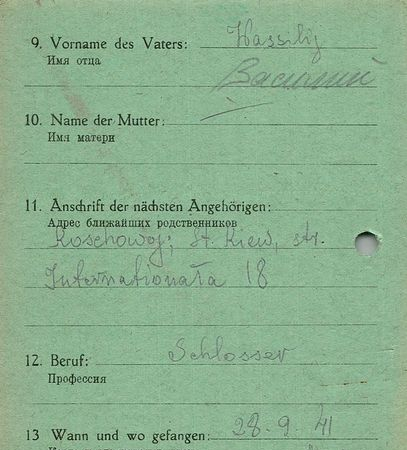 9. Vorname des Vaters: Wassilij
Имя отца
Василий
10. Name der Mutter:
Имя матери
11. Anschrift der nächsten Angehörigen:
Адрес ближайших родственников
Koschowoj; St. Kiew, str.
Internationala 18
12. Beruf: Schlosser
Профессия
13 Wann und wo gefangen: 28.9.41